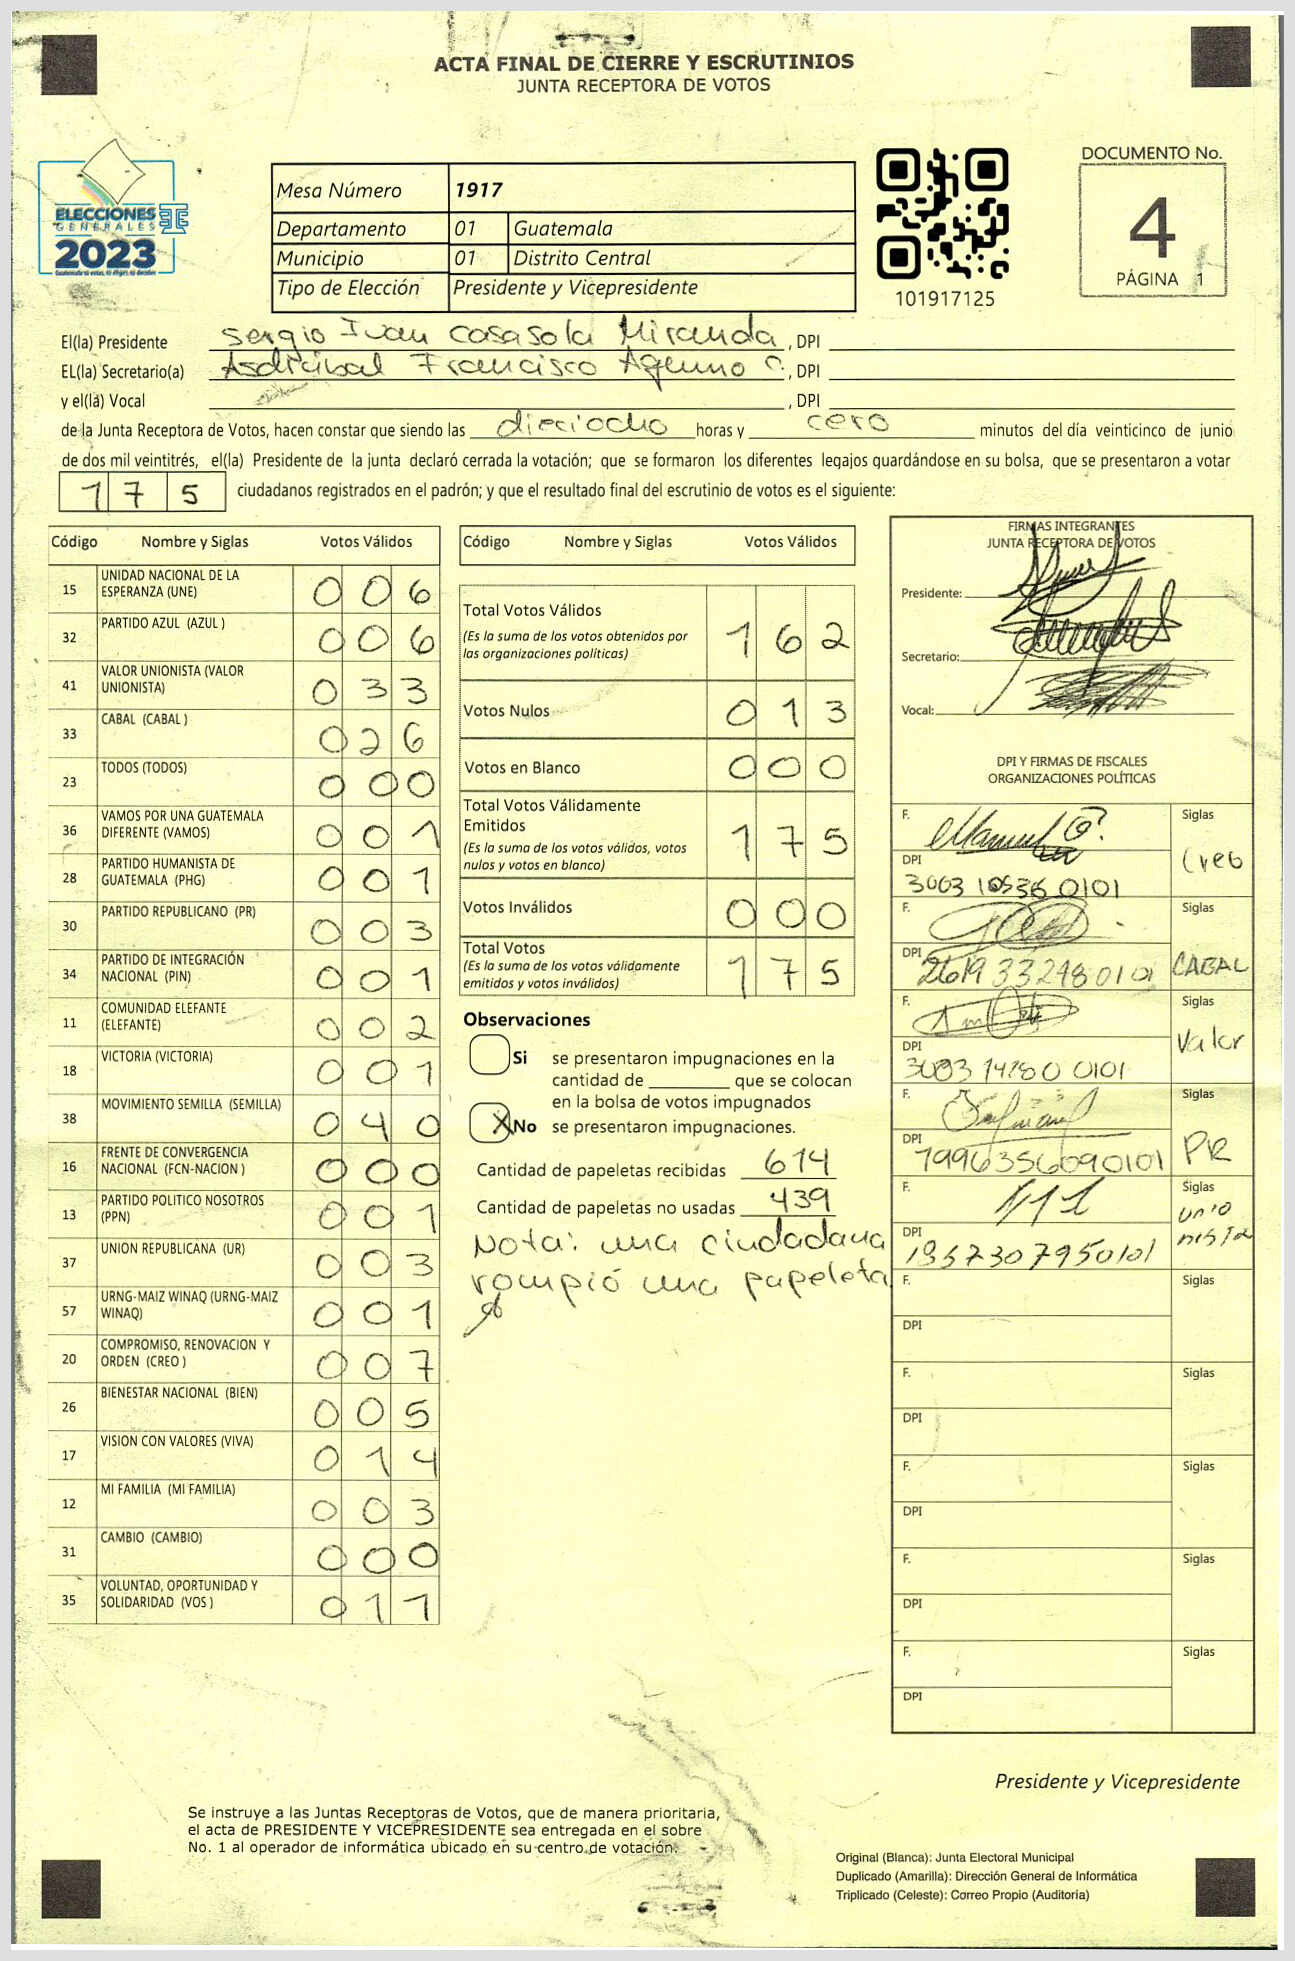 ACTA FINAL DE CIERRE Y ESCRUTINIOS
JUNTA RECEPTORA DE VOTOS
ELECCIONES
GENERALES
2023
Mesa Número 1917
Departamento 01 Guatemala
Municipio 01 Distrito Central
Tipo de Elección Presidente y Vicepresidente
101917125
DOCUMENTO No.
4
PÁGINA 1
El(la) Presidente Sergio Ivan Casasola Miranda, DPI
EL(la) Secretario(a) Francisco, DPI
y el(la) Vocal , DPI
de la Junta Receptora de Votos, hacen constar que siendo las dieciocho horas y cero minutos del día veinticinco de junio
de dos mil veintitrés, el(la) Presidente de la junta declaró cerrada la votación; que se formaron los diferentes legajos guardándose en su bolsa, que se presentaron a votar
175 ciudadanos registrados en el padrón; y que el resultado final del escrutinio de votos es el siguiente:
Código Nombre y Siglas Votos Válidos
15 UNIDAD NACIONAL DE LA ESPERANZA (UNE) 006
32 PARTIDO AZUL (AZUL ) 006
41 VALOR UNIONISTA (VALOR UNIONISTA) 033
33 CABAL (CABAL ) 026
23 TODOS (TODOS) 000
36 VAMOS POR UNA GUATEMALA DIFERENTE (VAMOS) 001
28 PARTIDO HUMANISTA DE GUATEMALA (PHG) 001
30 PARTIDO REPUBLICANO (PR) 003
34 PARTIDO DE INTEGRACIÓN NACIONAL (PIN) 001
11 COMUNIDAD ELEFANTE (ELEFANTE) 002
18 VICTORIA (VICTORIA) 001
38 MOVIMIENTO SEMILLA (SEMILLA) 040
16 FRENTE DE CONVERGENCIA NACIONAL (FCN-NACION ) 000
13 PARTIDO POLITICO NOSOTROS (PPN) 001
37 UNION REPUBLICANA (UR) 003
57 URNG-MAIZ WINAQ (URNG-MAIZ WINAQ) 001
20 COMPROMISO, RENOVACION Y ORDEN (CREO ) 007
26 BIENESTAR NACIONAL (BIEN) 005
17 VISION CON VALORES (VIVA) 014
12 MI FAMILIA (MI FAMILIA) 003
31 CAMBIO (CAMBIO) 000
35 VOLUNTAD, OPORTUNIDAD Y SOLIDARIDAD (VOS ) 011
Código Nombre y Siglas Votos Válidos
Total Votos Válidos 162
(Es la suma de los votos obtenidos por
las organizaciones políticas)
Votos Nulos 013
Votos en Blanco 000
Total Votos Válidamente
Emitidos 175
(Es la suma de los votos válidos, votos
nulos y votos en blanco)
Votos Inválidos 000
Total Votos 175
(Es la suma de los votos válidamente
emitidos y votos inválidos)
Observaciones
Si se presentaron impugnaciones en la
cantidad de ________ que se colocan
en la bolsa de votos impugnados
X No se presentaron impugnaciones.
Cantidad de papeletas recibidas 614
Cantidad de papeletas no usadas 439
Nota: una ciudadana
rompió una papeleta
FIRMAS INTEGRANTES
JUNTA RECEPTORA DE VOTOS
Presidente:
Secretario:
Vocal:
DPI Y FIRMAS DE FISCALES
ORGANIZACIONES POLÍTICAS
F. Siglas
DPI Creo
F. Siglas
DPI 2619 33248 0101 CABAL
F. Siglas
DPI Valor
F. Siglas
DPI 1996356090101 PR
F. Siglas
DPI 1957307950101 unionista
F. Siglas
DPI
F. Siglas
DPI
F. Siglas
DPI
F. Siglas
DPI
F. Siglas
DPI
Presidente y Vicepresidente
Se instruye a las Juntas Receptoras de Votos, que de manera prioritaria,
el acta de PRESIDENTE Y VICEPRESIDENTE sea entregada en el sobre
No. 1 al operador de informática ubicado en su centro de votación.
Original (Blanca): Junta Electoral Municipal
Duplicado (Amarilla): Dirección General de Informática
Triplicado (Celeste): Correo Propio (Auditoría)